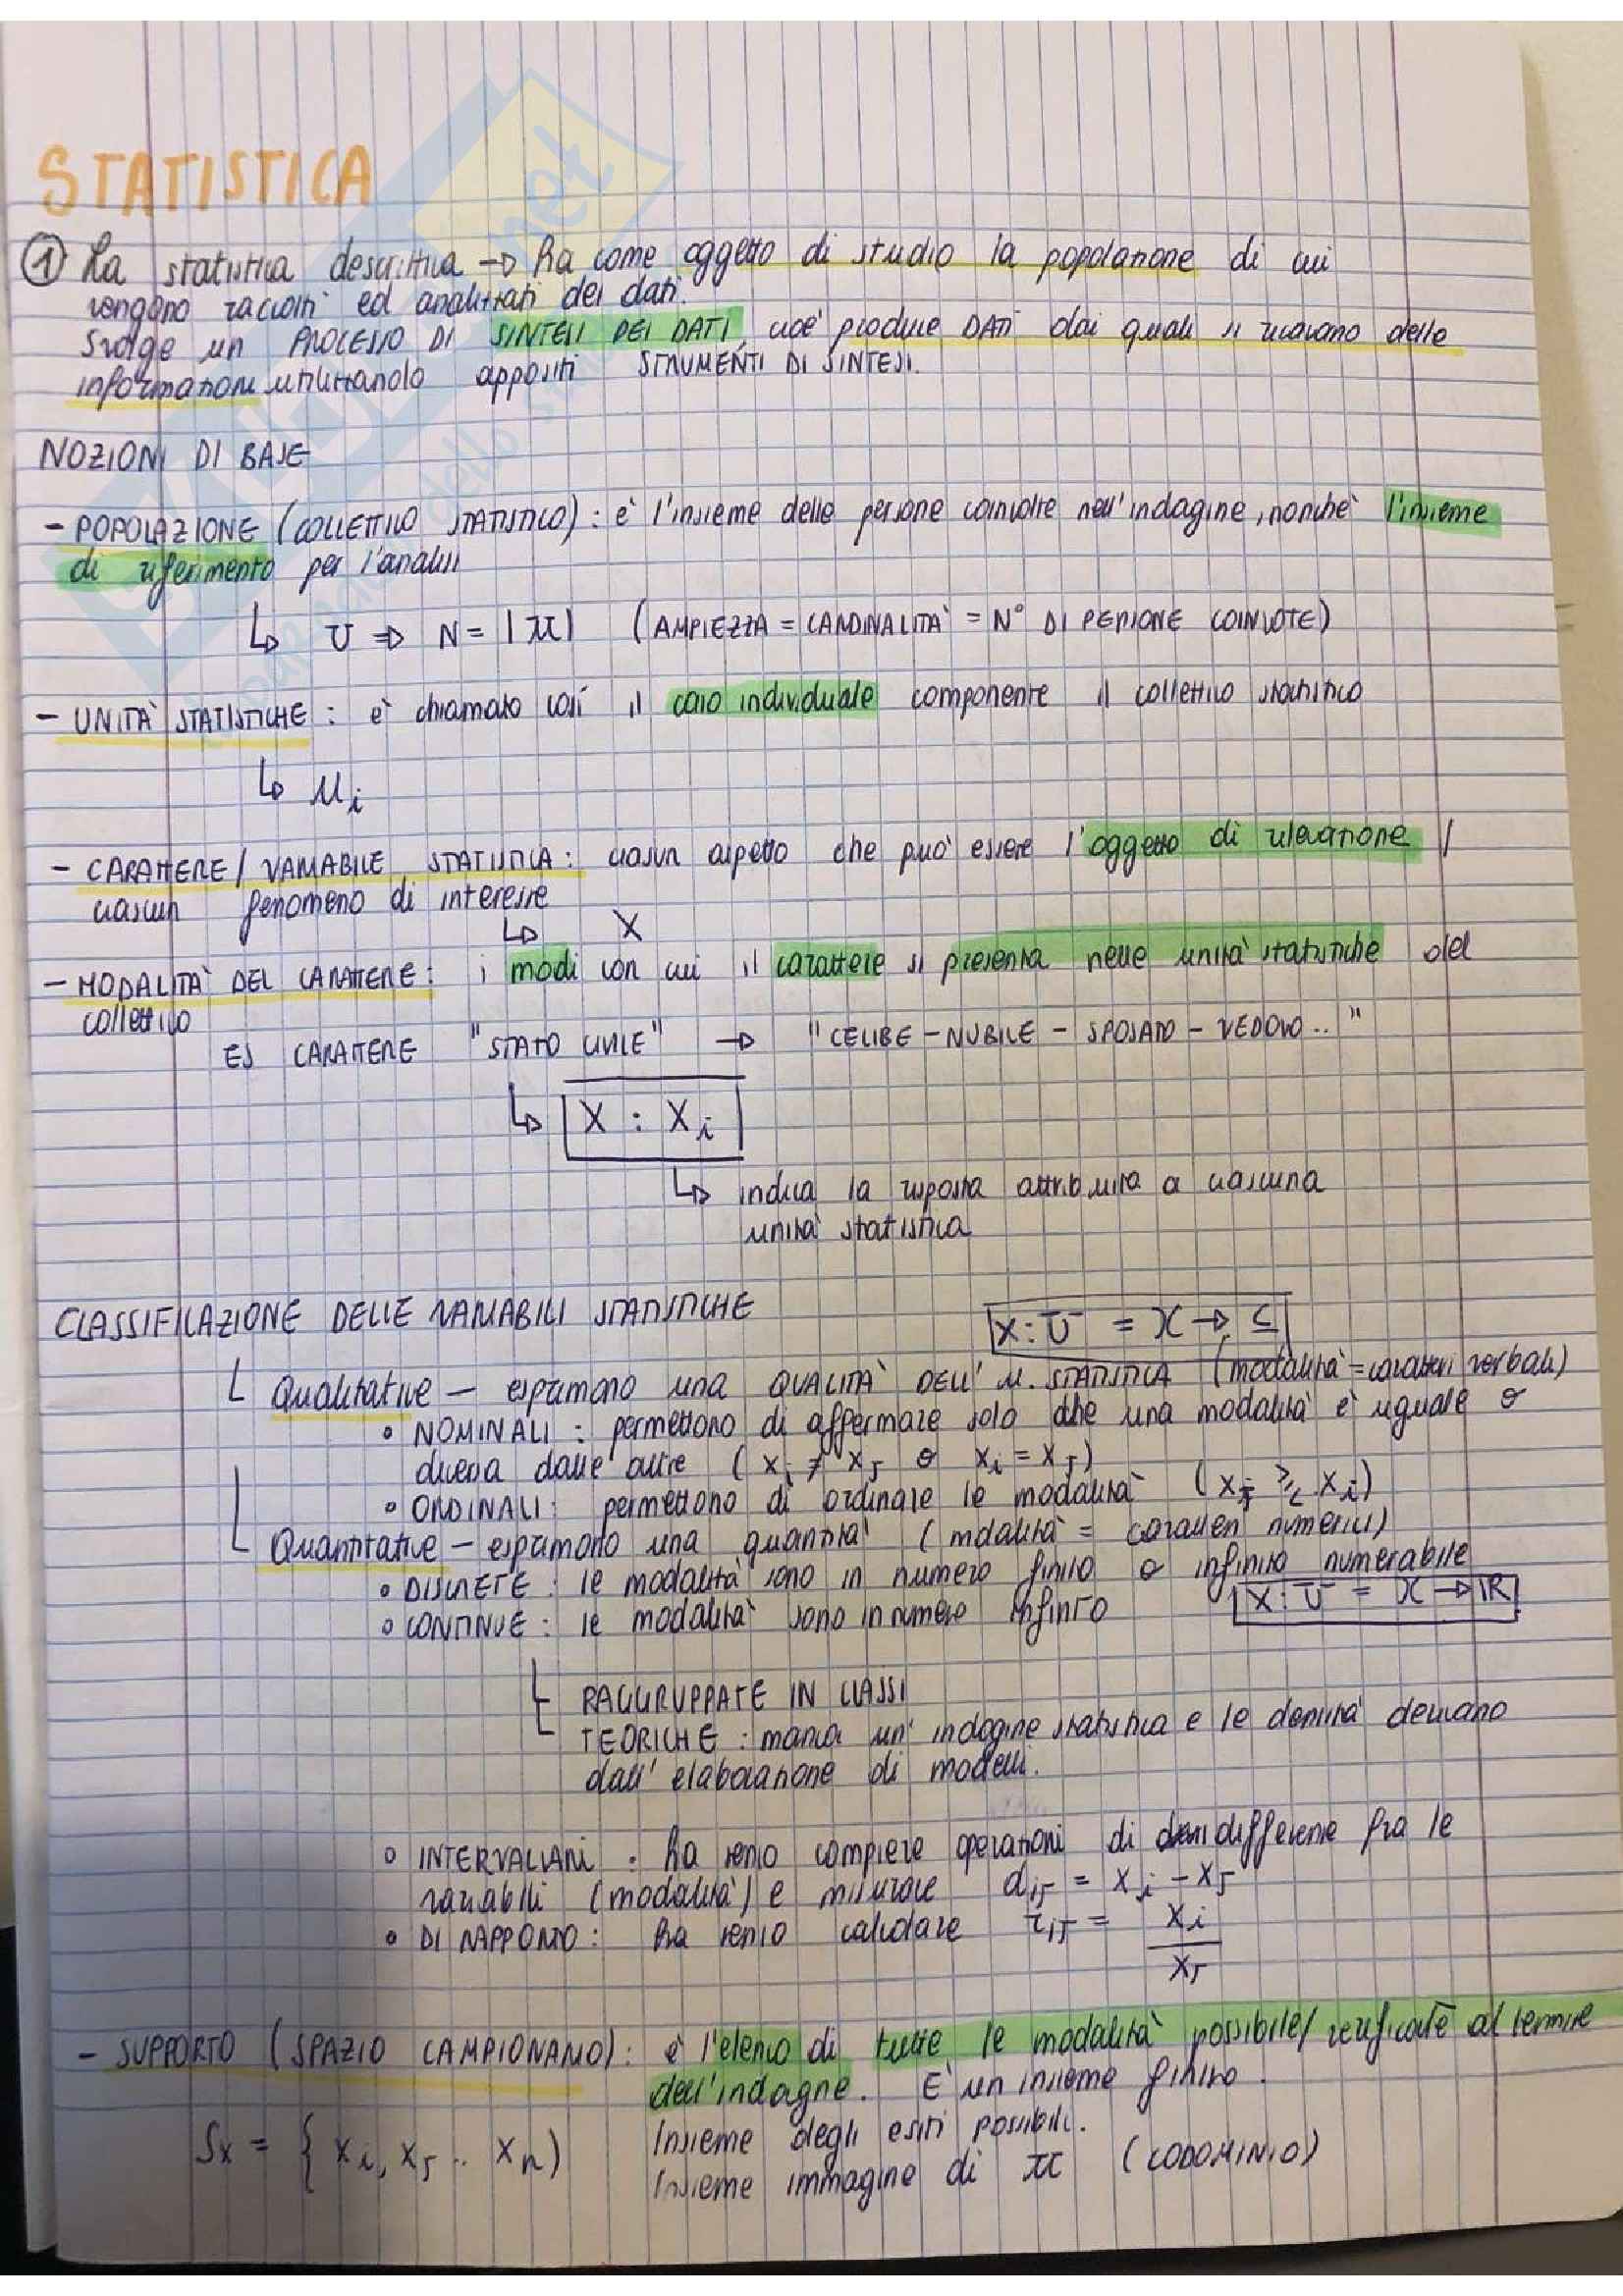 STATISTICA
① La statistica descrittiva → ha come oggetto di studio la popolazione di cui
vengono raccolti ed analizzati dei dati.
Svolge un PROCESSO DI SINTESI DEI DATI, cioè produce DATI dai quali si ricavano delle
informazioni utilizzando appositi STRUMENTI DI SINTESI.
NOZIONI DI BASE
- POPOLAZIONE (COLLETTIVO STATISTICO): è l'insieme delle persone coinvolte nell'indagine, nonchè l'insieme
di riferimento per l'analisi
↳ U ⇒ N = |U| (AMPIEZZA = CARDINALITÀ = N° DI PERSONE COINVOTE)
- UNITÀ STATISTICHE: è chiamato così il caso individuale componente il collettivo statistico
↳ ui
- CARATTERE / VARIABILE STATISTICA: ciascun aspetto che può essere l'oggetto di rilevazione /
ciascun fenomeno di interesse
↳ X
- MODALITÀ DEL CARATTERE: i modi con cui il carattere si presenta nelle unità statistiche del
collettivo
ES CARATTERE "STATO CIVILE" → "CELIBE - NUBILE - SPOSATO - VEDOVO.."
↳ X : Xi
↳ indica la risposta attribuita a ciascuna
unità statistica
CLASSIFICAZIONE DELLE VARIABILI STATISTICHE
X: U = X → C
Qualitative - esprimono una QUALITÀ DELL' u. STATISTICA (modalità = caratteri verbali)
• NOMINALI: permettono di affermare solo che una modalità è uguale o
diversa dalle altre (xi ≠ xj o xi = xj)
• ORDINALI: permettono di ordinare le modalità (xj ≥ xi)
Quantitative - esprimono una quantità (mdalità = caratteri numerici)
• DISCRETE: le modalità sono in numero finito o infinito numerabile
X: U = X → ℝ
• CONTINUE: le modalità sono in numero infinito
RAGGRUPPATE IN CLASSI
TEORICHE: manca un' indagine statistica e le densità derivano
dall' elaborazione di modelli.
• INTERVALLARI: ha senso compiere operazioni di differenze fra le
variabili (modalità) e misurare dij = xi - xj
• DI RAPPORTO: ha senso calcolare rij = xi / xj
- SUPPORTO (SPAZIO CAMPIONARIO): è l'elenco di tutte le modalità possibile/verificate al termine
dell'indagine. È un insieme finito.
Insieme degli esiti possibili.
Sx = { xi, xj .. xn)
Insieme immagine di U (CODOMINIO)